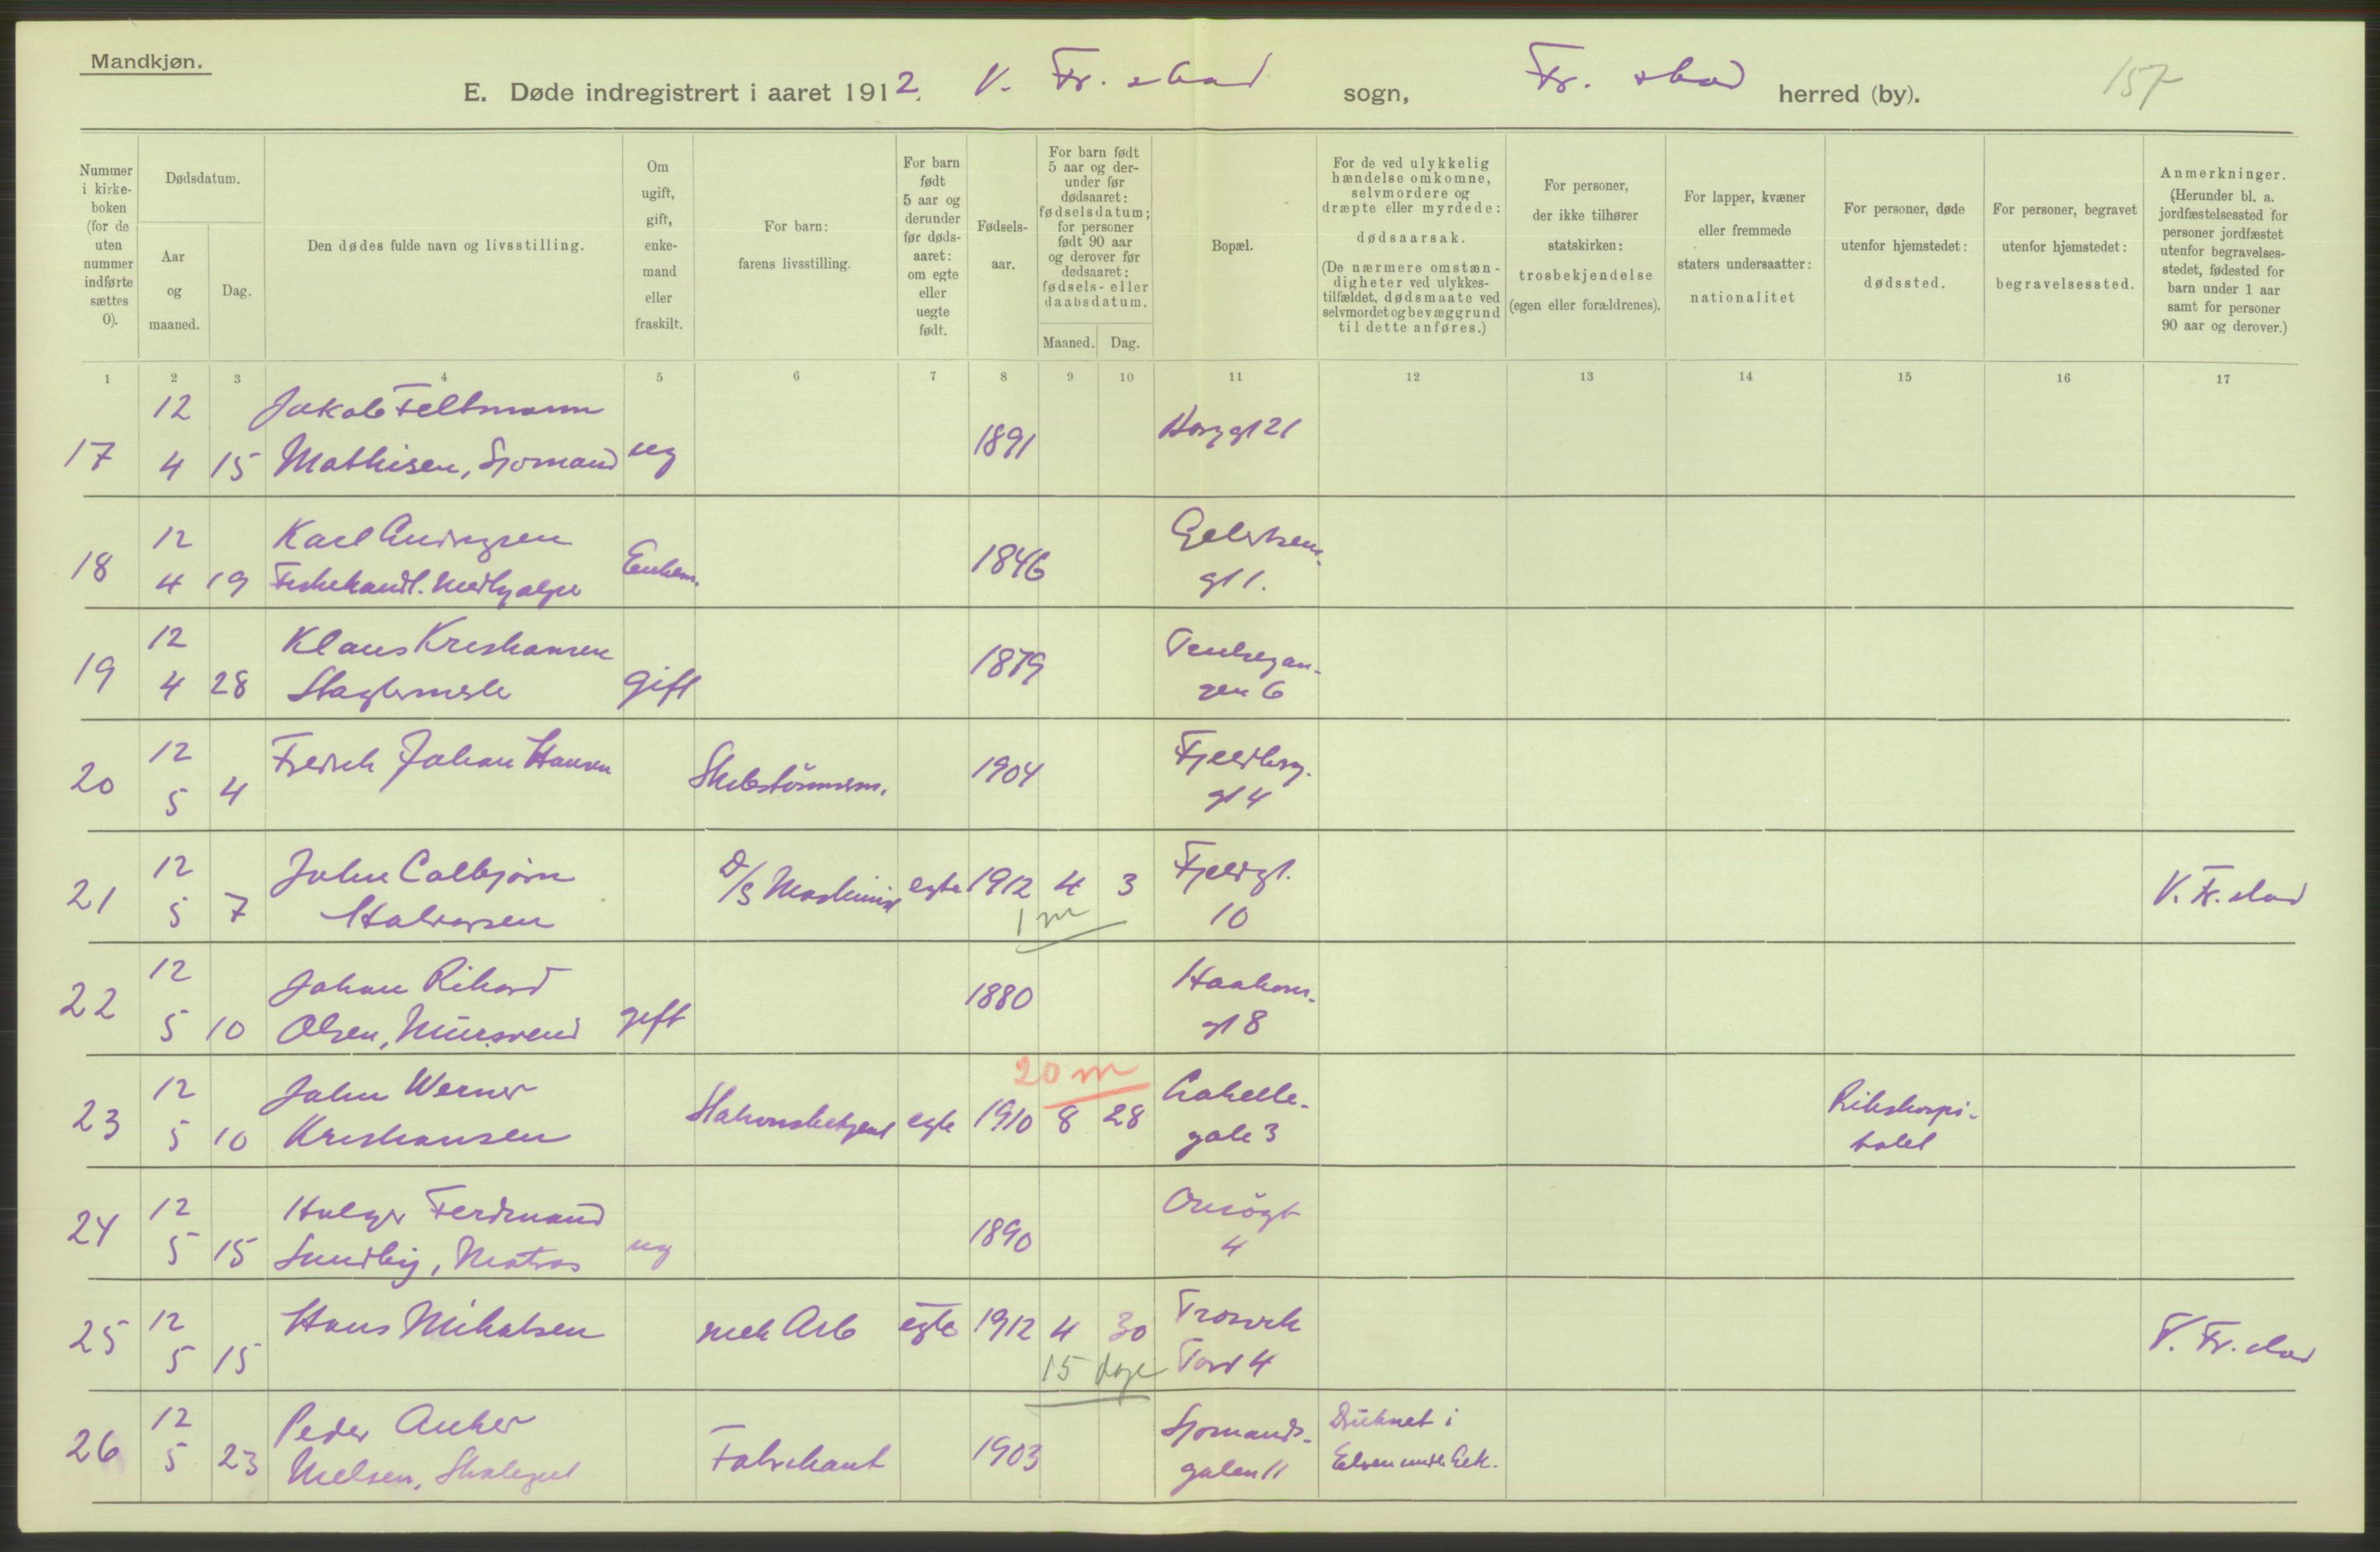 Mandkjøn.
E. Døde indregistrert i aaret 1912. V. Fr. stad sogn, Fr. stad herred (by). 157
Nummer i kirke-boken (for de uten nummer indførte sættes 0).
Dødsdatum.
Aar og maaned.
Dag.
Den dødes fulde navn og livsstilling.
Om ugift, gift, enke-mand eller fraskilt.
For barn: farens livsstilling.
For barn født 5 aar og derunder før døds-aaret: om egte eller uegte født.
Fødsels-aar.
For barn født 5 aar og der-under før dødsaaret: fødselsdatum; for personer født 90 aar og derover før dødsaaret: fødsels- eller daabsdatum.
Maaned. Dag.
Bopæl.
For de ved ulykkelig hændelse omkomne, selvmordere og dræpte eller myrdede: dødsaarsak. (De nærmere omstæn-digheter ved ulykkes-tilfældet, dødsmaate ved selvmordet og bevæggrund til dette anføres.)
For personer, der ikke tilhører statskirken: trosbekjendelse (egen eller forældrenes).
For lapper, kvæner eller fremmede staters undersaatter: nationalitet
For personer, døde utenfor hjemstedet: dødssted.
For personer, begravet utenfor hjemstedet: begravelsessted.
Anmerkninger. (Herunder bl. a. jordfæstelsessted for personer jordfæstet utenfor begravelses-stedet, fødested for barn under 1 aar samt for personer 90 aar og derover.)
1 2 3 4 5 6 7 8 9 10 11 12 13 14 15 16 17
12 Jakob Feltmann
17 4 15 Mathisen, Sjomand ug 1891 gt 21
12 Karl
18 4 19 Fiskehandl. Enkem. 1846 gt 1.
12 Klaus Kristiansen
19 4 28 gift 1879 gen 6
12 Fredrik Johan Hansen
20 5 4 Skibstömmerm. 1904 Fjeldberg. gt 4
12 John Colbjörn
21 5 7 Halvorsen D/S Maskinist egte 1912 4 3 Fjeldgt. 10 V. Fr. stad
1 m
12 Johan Rikard
22 5 10 Olsen, Mursvend gift 1880 Haakons- gt 8
20 m
12 John Werner
23 5 10 Kristiansen Stationsbetjent egte 1910 8 28 gate 3 Rikshospi- talet
12 Holger Ferdinand
24 5 15 Sundby, Matros ug 1890 Onsögt 4
12 Hans Mikalsen
25 5 15 mek Arb egte 1912 4 30 Trosvik Torv 4 V. Fr. stad
15 dage
12 Peder Anker
26 5 23 Nielsen, Skolegut Fabrikant 1903 Sjomands- gaten 11 Druknet i Elven under Lek.